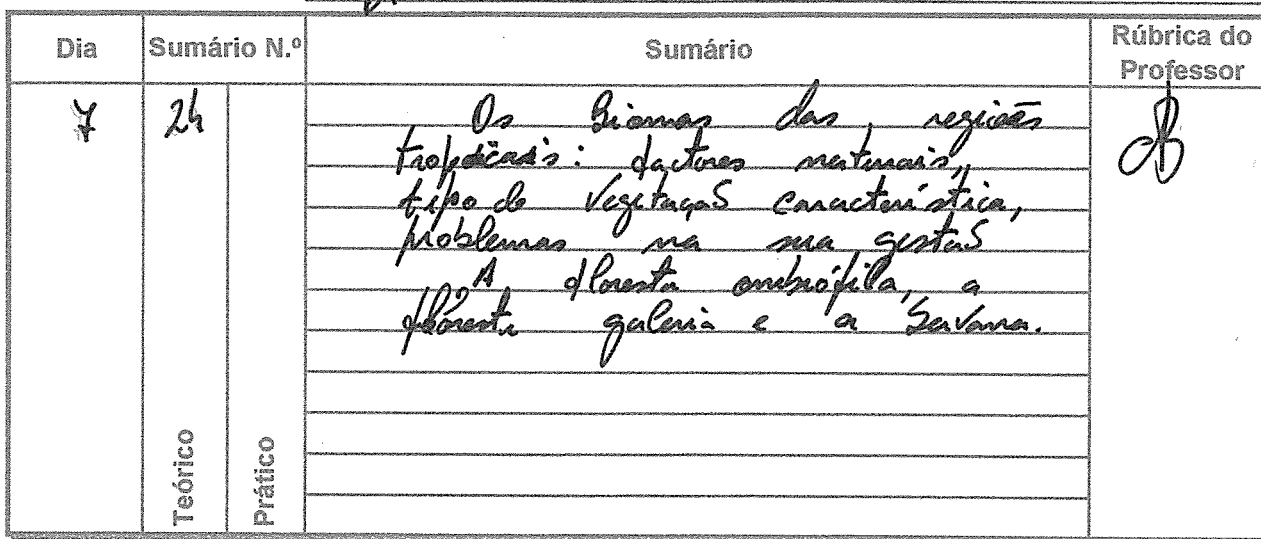 Dia Sumário N.º Sumário Rúbrica do Professor
7 2h Os Biomas das regiões
tropicais: factores naturais,
tipo de vegetação característica,
problemas na sua gestão
A floresta ombrófila, a
floresta galeria e a Savana.
Teórico Prático